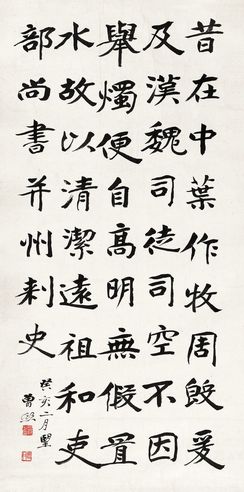 昔在中葉作牧周殷爰
及漢魏司徒司空不因
舉燭便自高明無假置
水故以清潔遠祖和吏
部尚書并州刺史
癸亥二月望
曾熙